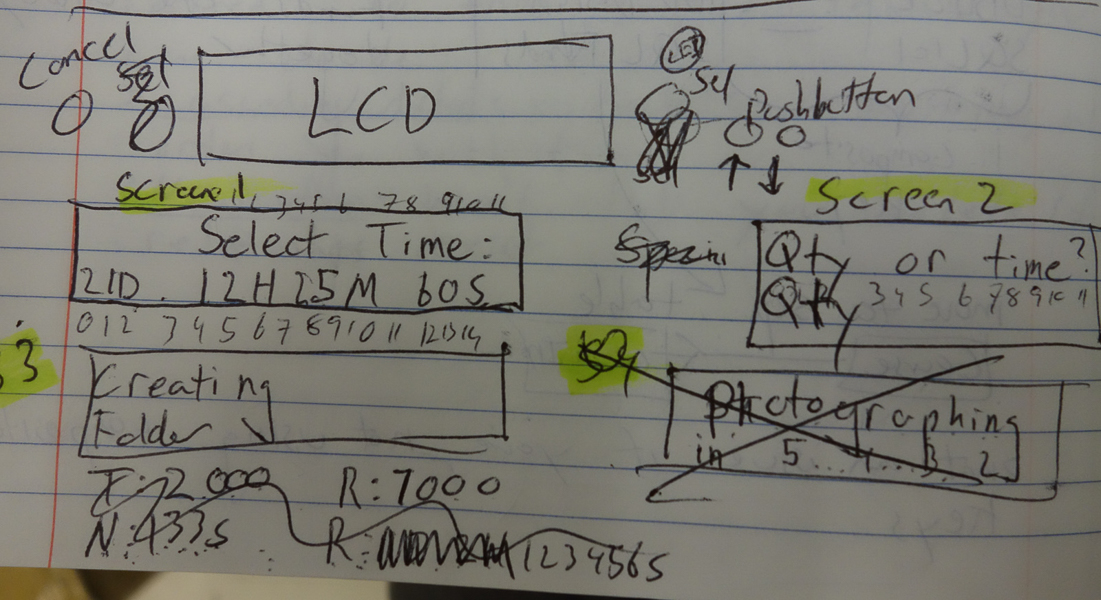 Cancel Set
LCD
LED
Set
Pushbutton
Set
Screen 1
3 4 5 6 7 8 9 10 11
Select Time:
21D. 12H 25M 60S
0 1 2 3 4 5 6 7 8 9 10 11 12 13 14
Screen 2
Qty or time?
Qty 3 4 5 6 7 8 9 10 11
3
Creating
Folder
Photographing
in 5... 4... 3 2
F: 2000 R: 7000
N: 433s R: 123456s